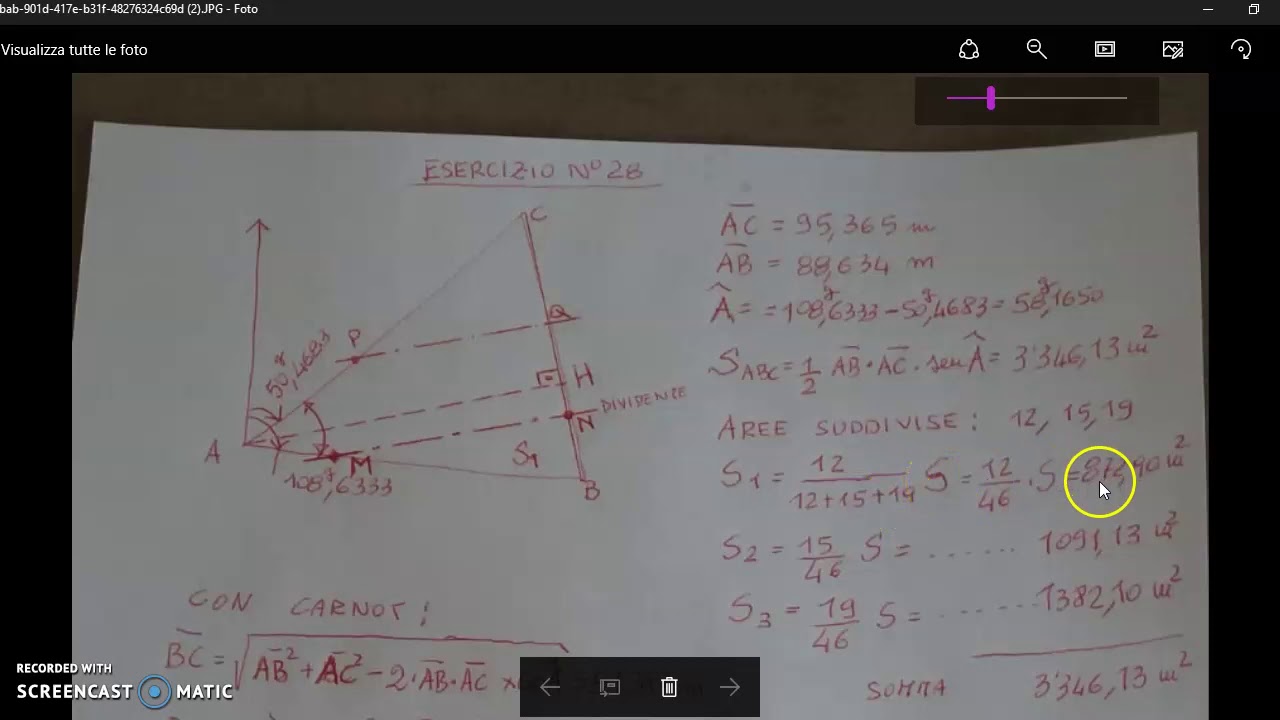 bab-901d-417e-b31f-48276324c69d (2).JPG - Foto
Visualizza tutte le foto
ESERCIZIO N° 28
C
Q
P
50ᵍ,4683
H
N
DIVIDENTE
A
M
S₁
B
108ᵍ,6333
AC = 95,365 m
AB = 88,634 m
Â = = 108ᵍ,6333 - 50ᵍ,4683 = 58ᵍ,1650
S_ABC = 1/2 AB · AC · sen Â = 3'346,13 m²
AREE SUDDIVISE: 12, 15, 19
S₁ = 12/(12+15+19) S = 12/46 · S = 872,90 m²
S₂ = 15/46 S = ...... 1091,13 m²
S₃ = 19/46 S = ...... 1382,10 m²
SOMMA 3'346,13 m²
CON CARNOT:
BC = √AB² + AC² - 2 · AB · AC
RECORDED WITH
SCREENCAST MATIC